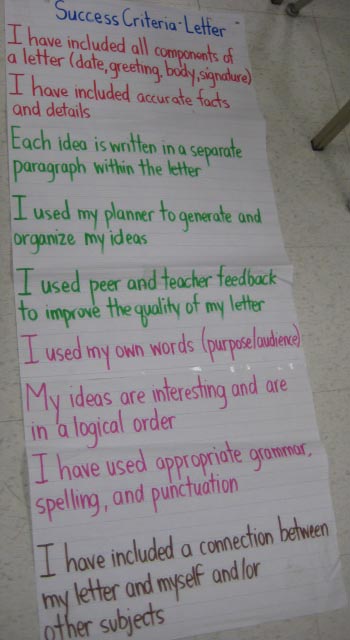 Success Criteria-Letter
I have included all components of
a letter (date, greeting, body, signature)
I have included accurate facts
and details
Each idea is written in a separate
paragraph within the letter
I used my planner to generate and
organize my ideas
I used peer and teacher feedback
to improve the quality of my letter
I used my own words (purpose/audience)
My ideas are interesting and are
in a logical order
I have used appropriate grammar,
spelling, and punctuation
I have included a connection between
my letter and myself and/or
other subjects